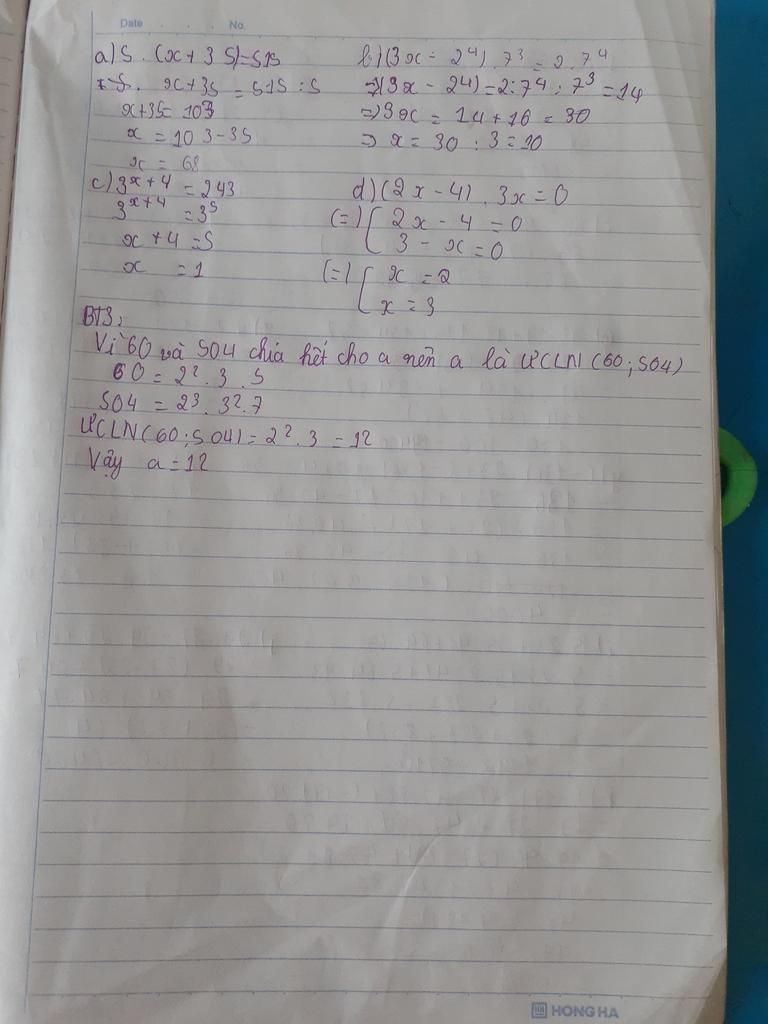 Date . . . No.
a) 5 . (x + 35) = 515
x + 35 = 515 : 5
x + 35 = 103
x = 103 - 35
x = 68
b) (3x - 2⁴) . 7³ = 2 . 7⁴
=> (3x - 2⁴) = 2 . 7⁴ : 7³ = 14
=> 3x = 14 + 16 = 30
=> x = 30 : 3 = 10
c) 3ˣ⁺⁴ = 243
3ˣ⁺⁴ = 3⁵
x + 4 = 5
x = 1
d) (2x - 4) . 3x = 0
(=) [ 2x - 4 = 0
3 - x = 0
(=) [ x = 2
x = 3
BT3:
Vì 60 và 504 chia hết cho a nên a là ƯCLN (60 ; 504)
60 = 2² . 3 . 5
504 = 2³ . 3² . 7
ƯCLN (60 ; 504) = 2² . 3 = 12
Vậy a = 12
HONG HA